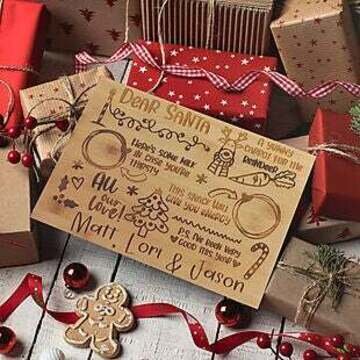 Dear Santa
Here's some milk
in case you're
thirsty
A yummy
carrot for the
reindeer
All
our
love!
This snack will
give you energy!
P.S. I've been very
good this year
Matt Lori & Jason